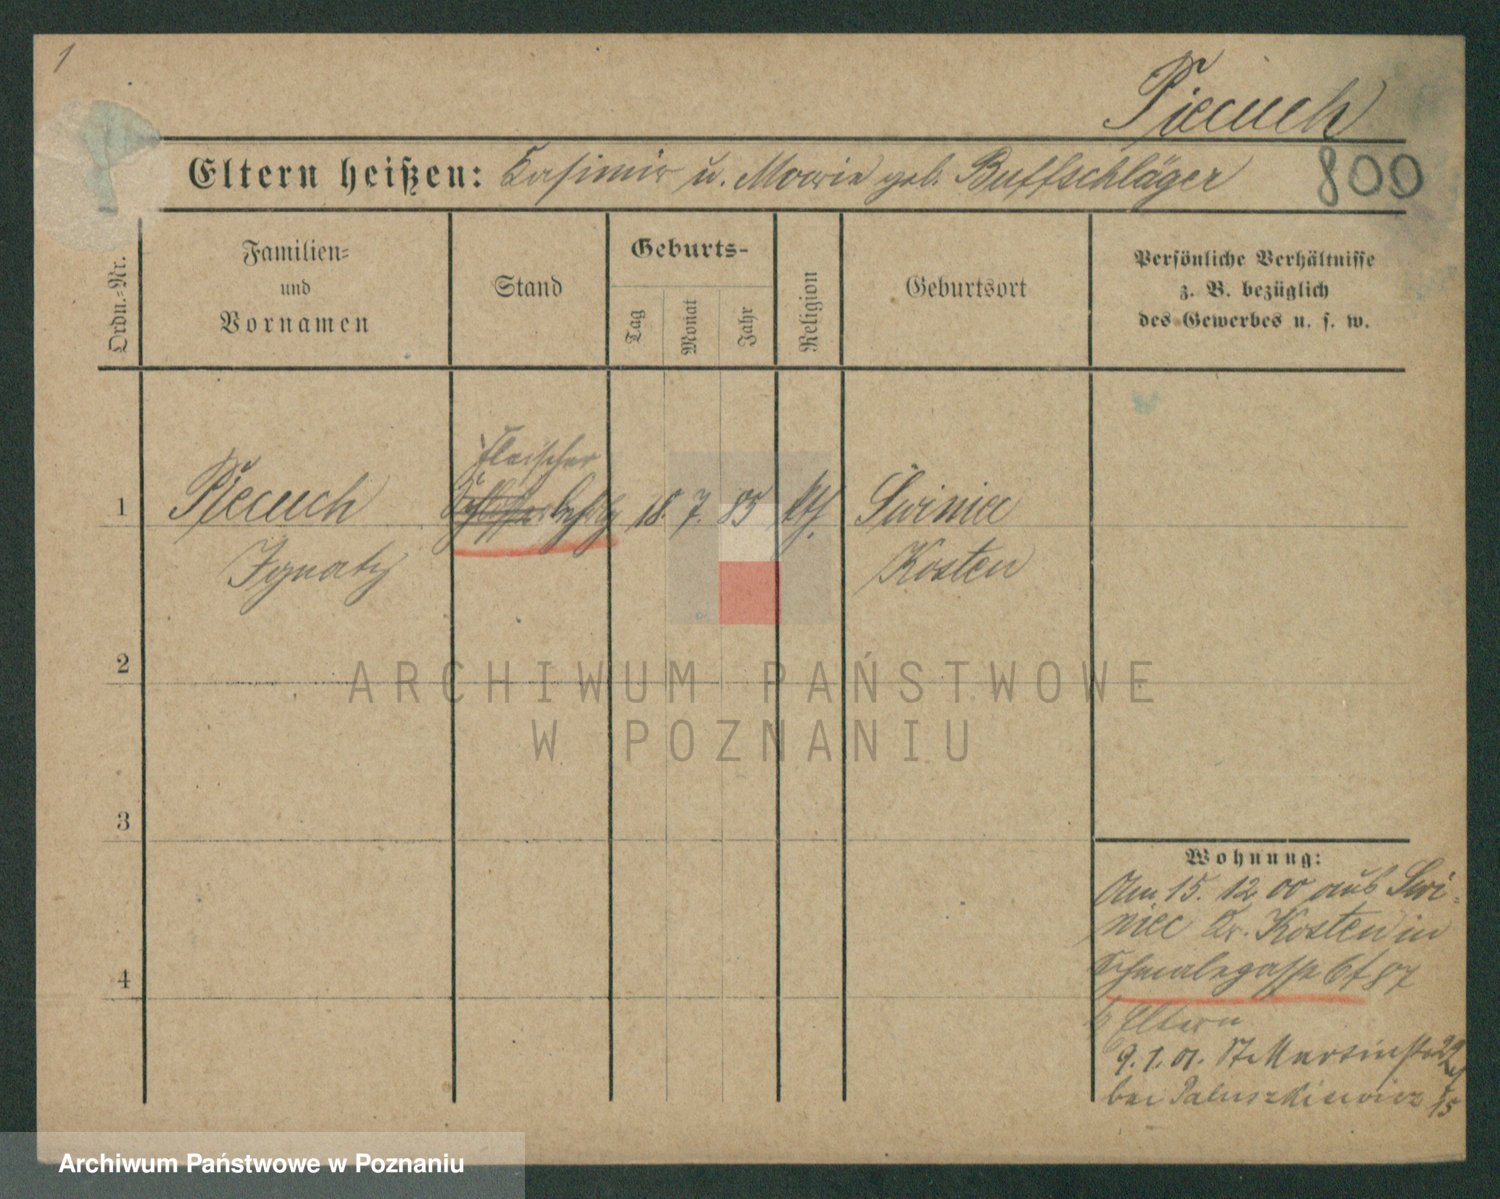 1
Piecuch
Eltern heißen: Casimir u. Marie geb. Buffschläger
800
Ordn.-Nr.
Familien-
und
Vornamen
Stand
Geburts-
Tag
Monat
Jahr
Religion
Geburtsort
Persönliche Verhältnisse
z. B. bezüglich
des Gewerbes u. s. w.
Fleischer
1 Piecuch 18. 7. 85 kth. Swiniec
Ignatz Kosten
2
3
4
Wohnung:
Am 15. 12 00 aus Swi-
niec Kr. Kosten in
Schmalegasse 6
b Eltern
9. 1. 01. St Martinstr 29
bei Paluszkiewicz
ARCHIWUM PAŃSTWOWE
W POZNANIU
Archiwum Państwowe w Poznaniu